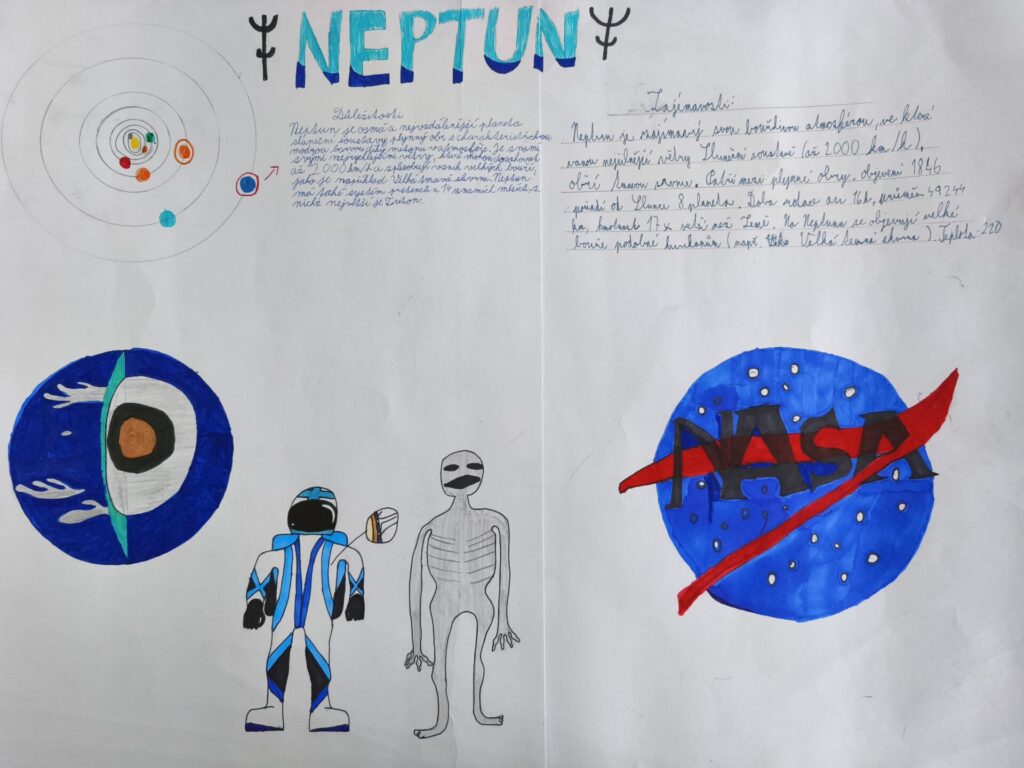 NEPTUN
Důležitosti
Neptun je osmá a nejvzdálenější planeta
sluneční soustavy, plynný obr s charakteristickou
modrou barvou díky metanu v atmosféře. Je známí
svými nejrychlejšími větry, které mohou dosahovat
až 2 000 km/h a způsobují vznik velkých bouří,
jako je například Velká tmavá skvrna. Neptun
má také systém prstenců a 14 známích měsíců, z
nichž největší je Triton.
Zajímavosti:
Neptun je zajímavý svou bouřlivou atmosférou, ve které
vanou nejsilnější větry Sluneční soustavě (až 2000 km/h),
obří tmavou skvrnu. Patří mezi plynné obry. Objevení 1846
pořadí od Slunce 8. planeta. Doba rotace asi 16h, průměr 49244
km, hmotnost 17x větší než Země. Na Neptunu se objevují velké
bouře podobné hurikánům (např. Velká temná skvrna). Teplota -220
NASA